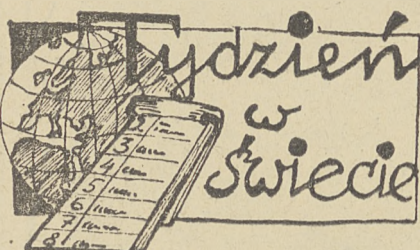 Tydzień
w
świecie
3
4
5
6
7
8